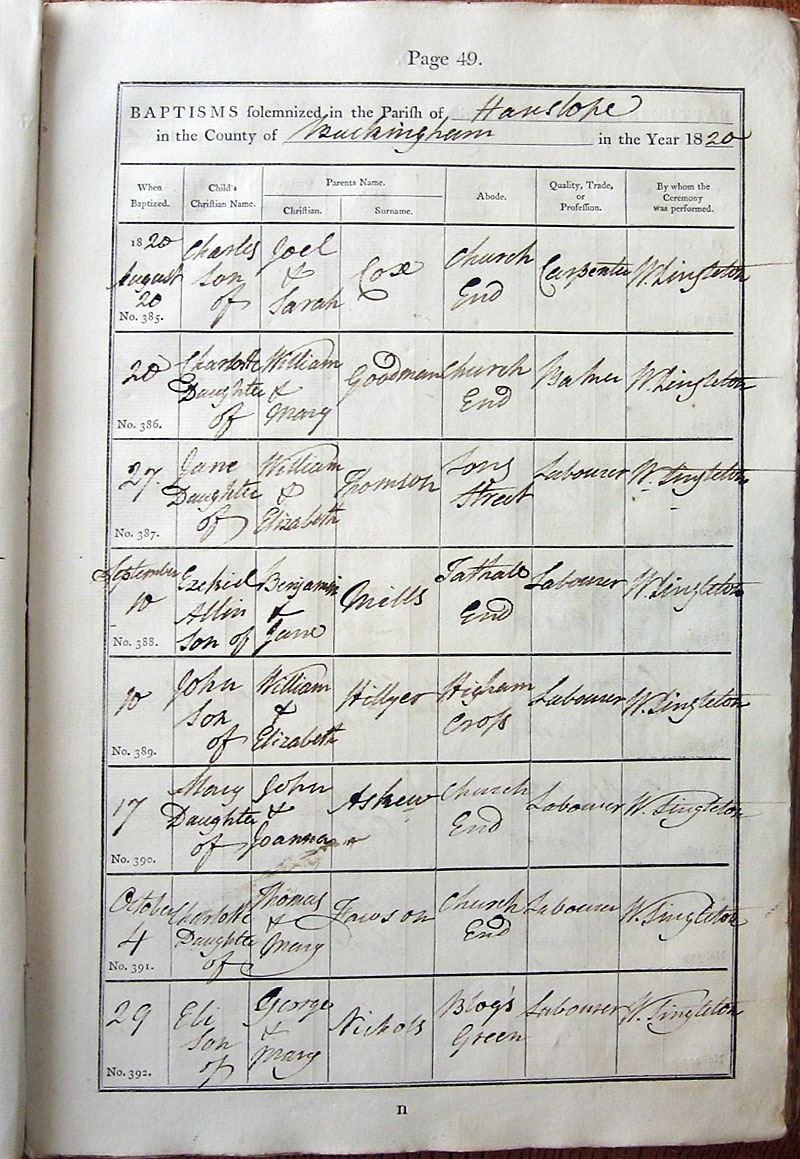 Page 49.
BAPTISMS solemnized in the Parish of Hanslope
in the County of Buckingham in the Year 1820
When Baptized.
Child's Christian Name.
Parents Name.
Christian.
Surname.
Abode.
Quality, Trade, or Profession.
By whom the Ceremony was performed.
1820
August
20
No. 385.
Charles
Son
of
Joel
&
Sarah
Cox
Church
End
Carpenter
W. Singleton
20
No. 386.
Charlotte
Daughter
of
William
&
Mary
Goodman
Church
End
Baker
W. Singleton
27.
No. 387.
Jane
Daughter
of
William
&
Elizabeth
Thomson
Long
Street
Labourer
W. Singleton
September
10
No. 388.
Ezekiel
Allin
Son of
Benjamin
&
Jane
Mills
Tathall
End
Labourer
W. Singleton
10
No. 389.
John
Son
of
William
&
Elizabeth
Hillyer
Higham
Cross
Labourer
W. Singleton
17
No. 390.
Mary
Daughter
of
John
&
Joanna
Askew
Church
End
Labourer
W. Singleton
October
4
No. 391.
Charlotte
Daughter
of
Thomas
&
Mary
Church
End
Labourer
W. Singleton
29
No. 392.
Eli
Son
of
George
&
Mary
Nichols
Green
Labourer
W. Singleton
n